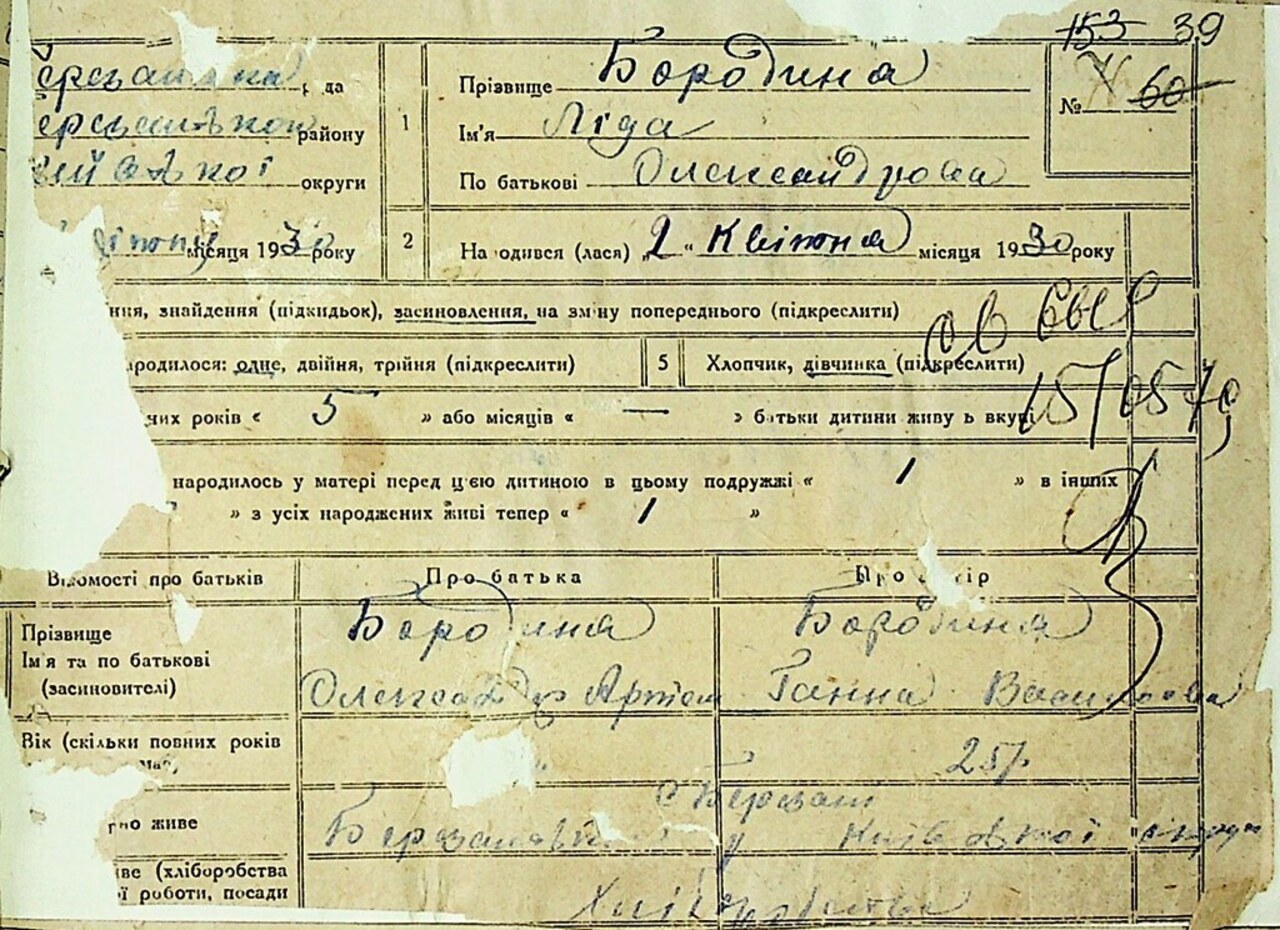 153 39
60
№
ерсзанська р да
району
округи
місяця 1930 року
1
Прізвище Бородина
Ім'я Ліда
По батькові Олександрова
2
На одився (лася) „2“ Квітня місяця 1930 року
ння, знайдення (підкидьок), засиновлення, на зміну попереднього (підкреслити)
народилося: одне, двійня, трійня (підкреслити)
5 Хлопчик, дівчинка (підкреслити)
св
15/05 70
них років « 5 » або місяців « — » батьки дитини живуть вкупі
народилось у матері перед цією дитиною в цьому подружжі « 1 » в інших
» з усіх народжених живі тепер « 1 »
Відомості про батьків
Про батька
Про матір
Прізвище
Ім'я та по батькові
(засиновителі)
Бородина
Олександр Артем
Бородина
Ганна Василова
Вік (скільки повних років
має,
25р
но живе
с Березань
Київської округи
ве (хліборобства
ї роботи, посади
Хліборобство